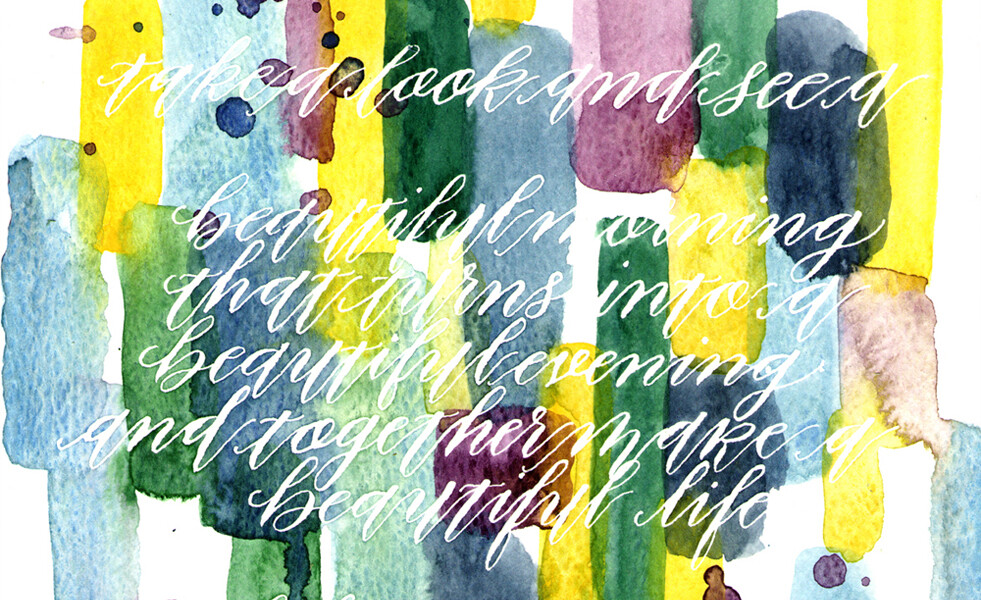 take a look and see a
beautiful morning
that turns into a
beautiful evening
and together make a
beautiful life